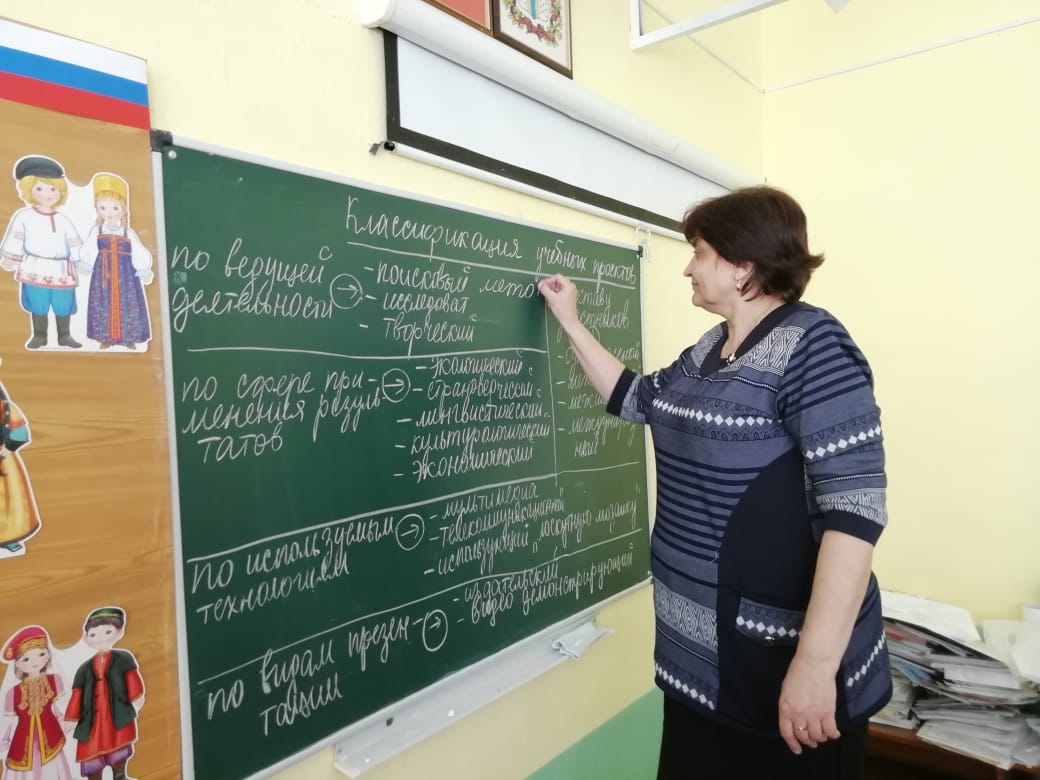 Классификация учебных проектов
по ведущей
деятельности
- поисковый мето
- исследоват
- творческий
по сфере при-
менения резуль
татов
- экологический
- страноведческий
- лингвистический
- культурологический
- экономический
по используемым
технологиям
- мультимедиа
- телекоммуникационный
- использующий "лоскутную мозаику"
по видам презен-
тации
- издательский
- видео демонстрирующей